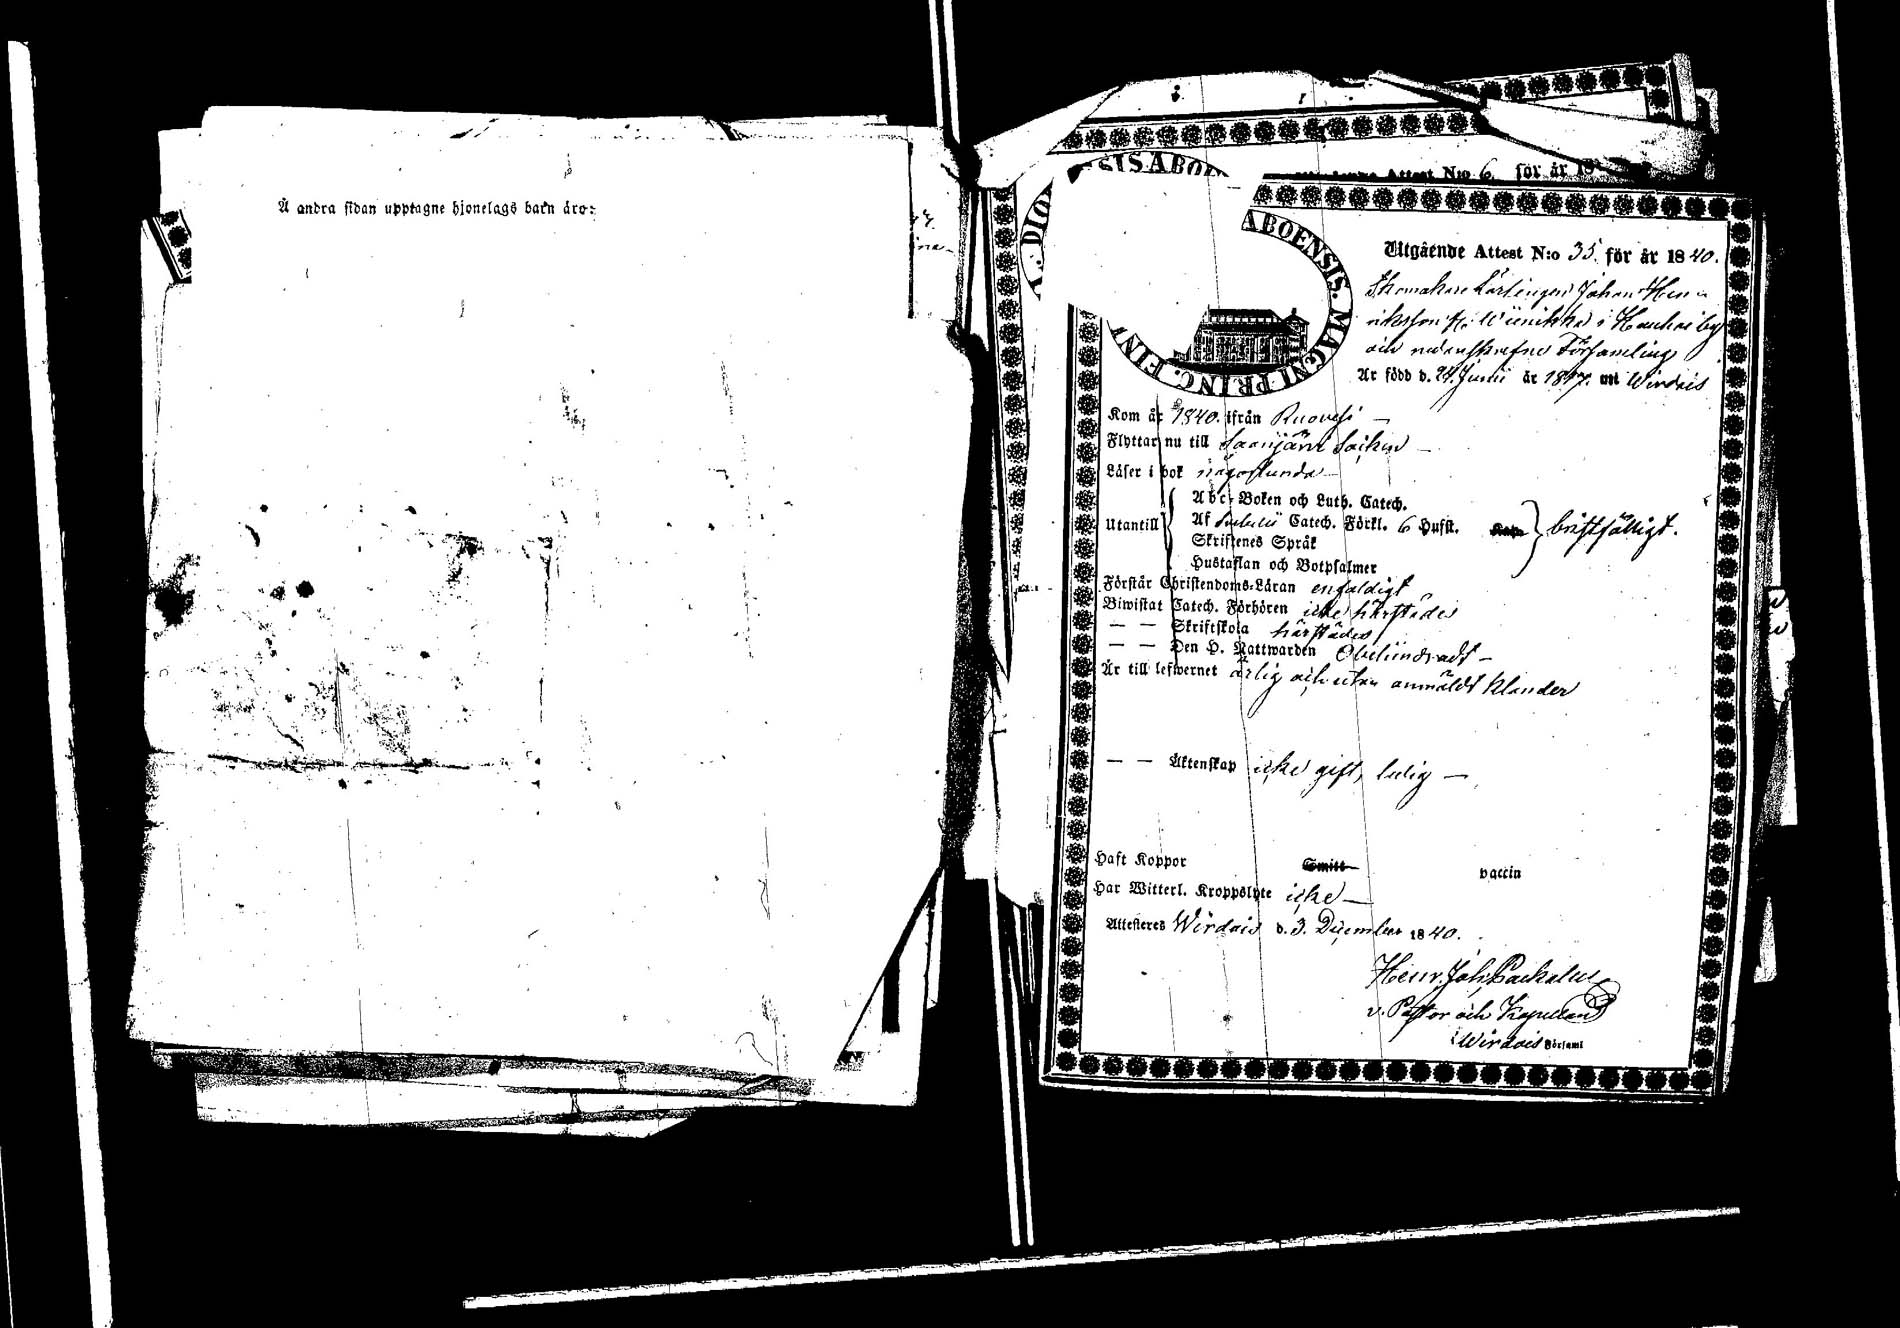 Å andra sidan upptagne hjonelags barn äro:
Attest N:o 6. för år 18
ABOENSIS. MAGNI PRINC. FINL
Utgående Attest N:o 35 för år 1840.
Skomakare Lärlingen Johan Hen-
riksson i
och nedanskrefne Församling
Är född d. 24. Junii år 1817. uti Wirdois
Kom år 1840. ifrån Ruovesi —
Flyttar nu till Saarijärvi Socken —
Läser i bok någorlunda —
Utantill
Abc-Boken och Luth. Catech.
Af Svebelii Catech. Förkl. 6 Hufst.
Skriftenes Språk
Hustaflan och Botpsalmer
bristfälligt.
Förstår Christendoms-Läran enfaldigt
Biwistat Catech. Förhören icke härstädes
— — Skriftskola härstädes
— — Den H. Nattwarden Obehindradt —
Är till lefwernet ärlig och utan anmäldt klander
— — Äktenskap icke gift, ledig —
Haft Koppor Smitt vaccin
Har Witterl. Kroppslyte icke —
Attesteres Wirdois d. 3. December 1840.
Henr. Joh.
v. Pastor och Kapellan
i Wirdois Församl